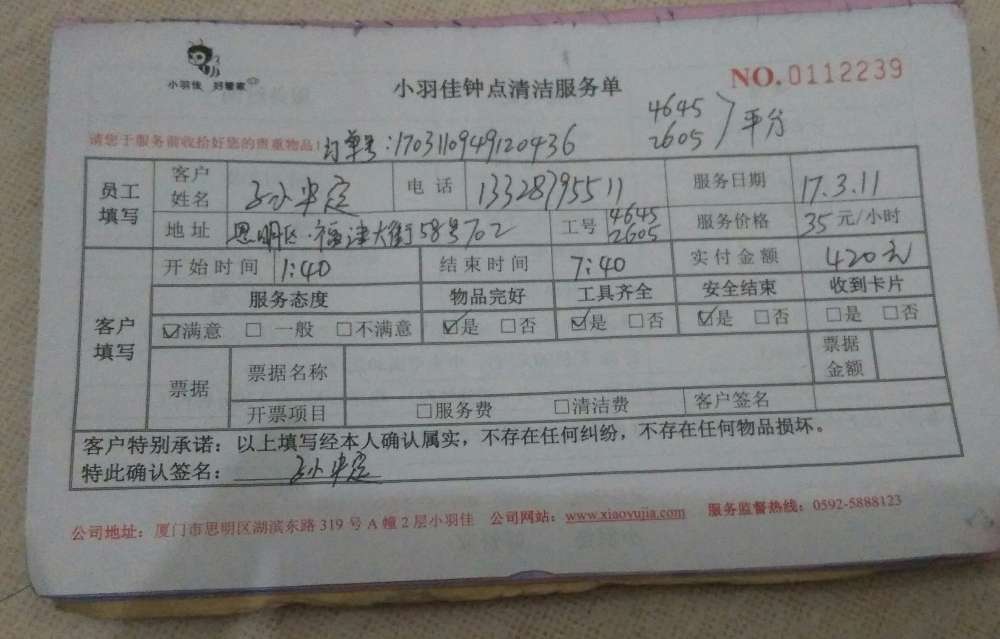 小羽佳 好管家
小羽佳钟点清洁服务单
NO.0112239
请您于服务前收拾好您的贵重物品!
订单号:1703110949120436
4645
2605
平分
员工填写
客户姓名
电话 13328795511
服务日期 17.3.11
地址 思明区·福津大街58号702
工号 4645 2605
服务价格 35元/小时
客户填写
开始时间 1:40
结束时间 7:40
实付金额 420元
服务态度 物品完好 工具齐全 安全结束 收到卡片
☑满意 □一般 □不满意 ☑是 □否 ☑是 □否 ☑是 □否 □是 □否
票据
票据名称
票据金额
开票项目 □服务费 □清洁费 客户签名
客户特别承诺:以上填写经本人确认属实,不存在任何纠纷,不存在任何物品损坏。
特此确认签名:
公司地址:厦门市思明区湖滨东路319号A幢2层小羽佳 公司网站:www.xiaoyujia.com 服务监督热线:0592-5888123